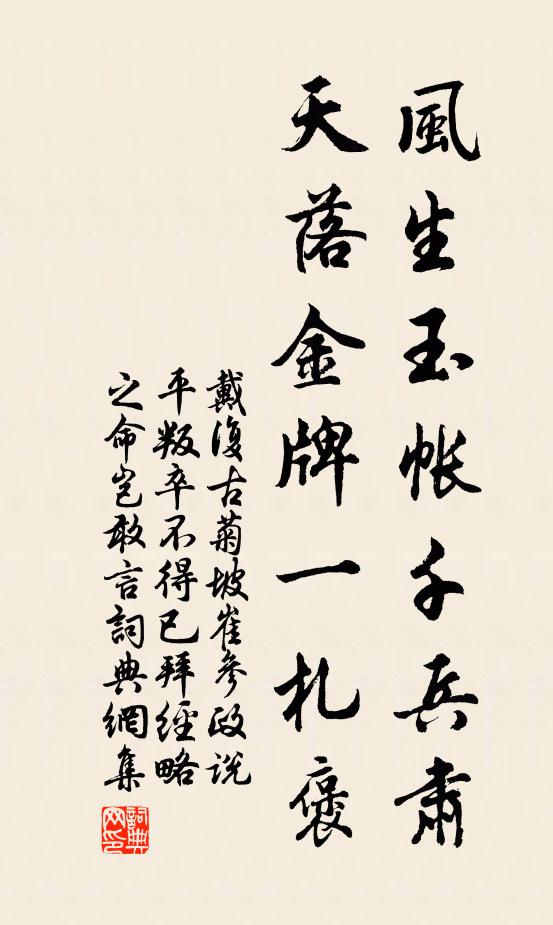 風生玉帳千兵肅
天落金牌一札褒
戴復古菊坡崔參政說
平叛卒不得已拜經略
之命豈敢言詞典網集
詞典網印